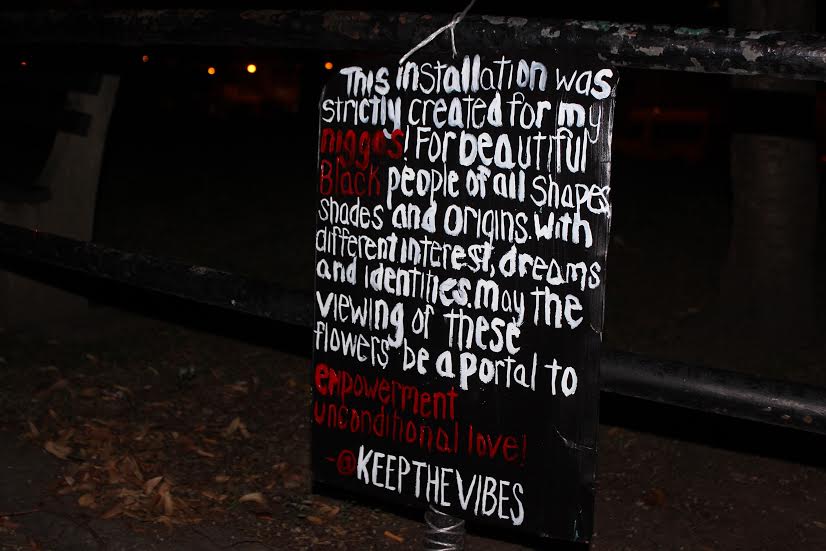 This installation was
strictly created for my
niggas! For beautiful
Black people of all shapes
shades and origins. With
different interest, dreams
and identities. May the
viewing of these
flowers be a portal to
empowerment
unconditional love!
-@KEEPTHEVIBES